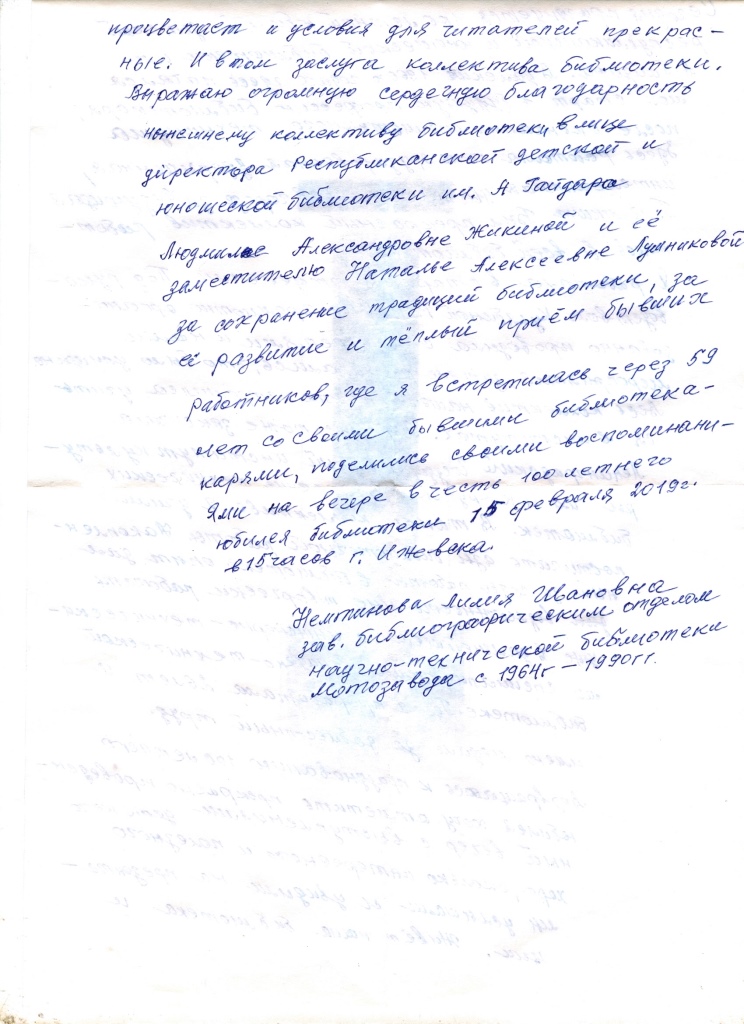 процветает и условия для читателей прекрас-
ные. И в том заслуга коллектива библиотеки.
Выражаю огромную сердечную благодарность
нынешнему коллективу библиотеки, в лице
директора Республиканской детской и
юношеской библиотеки им. А Гайдара
Людмиле Александровне Жикиной и её
заместителю Наталье Алексеевне
за сохранение традиций библиотеки, за
её развитие и тёплый приём бывших
работников, где я встретилась через 59
лет со своими бывшими библиотека-
карями, поделились своими воспоминани-
ями на вечере в честь 100 летнего
юбилея библиотеки 15 февраля 2019г.
в 15 часов г. Ижевска.
Лилия Ивановна
зав. библиографическим отделом
научно-технической библиотеки
Мотозавода с 1964г – 1990гг.